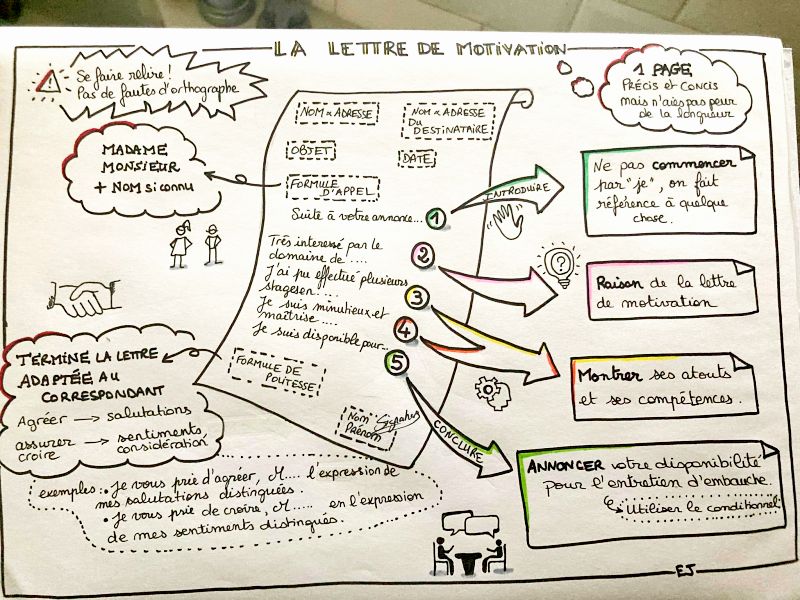 LA LETTRE DE MOTIVATION
Se faire relire!
Pas de fautes d'orthographe
1 PAGE
PRÉCIS et CONCIS
mais n'aies pas peur
de la longueur
MADAME
MONSIEUR
+ NOM si connu
NOM & ADRESSE
NOM & ADRESSE
DU
DESTINATAIRE
OBJET
DATE
FORMULE
D'APPEL
Suite à votre annonce...
1
INTRODUIRE
Ne pas commencer
par "je", on fait
référence à quelque
chose.
Très interessé par le
domaine de ....
2
?
Raison de la lettre
de motivation
J'ai pu effectué plusieurs
stages en ....
3
Je suis minutieux et
maîtrise ....
4
Montrer ses atouts
et ses compétences.
Je suis disponible pour...
5
CONCLURE
ANNONCER votre disponibilité
pour l'entretien d'embauche.
Utiliser le conditionnel
FORMULE DE
POLITESSE
NOM
PRÉNOM
TERMINE LA LETTRE
ADAPTÉE AU
CORRESPONDANT
Agréer → salutations
assurer
croire → sentiments
considération
exemples: • Je vous prie d'agréer, M.... l'expression de
mes salutations distinguées.
• Je vous prie de croire, M..... en l'expression
de mes sentiments distingués.
EJ